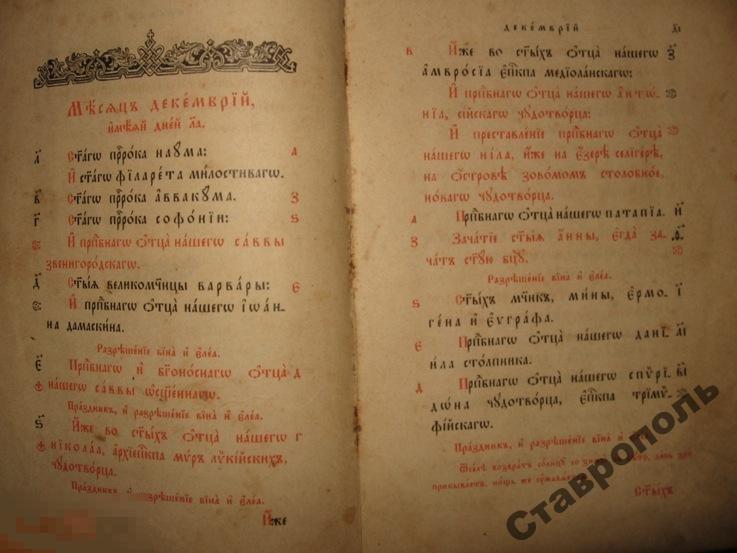 Мѣсяцъ декемврїй,
и҆мѣѧй дне́й л҃а.
а҃ ст҃а́гѡ прⷪ҇ро́ка наꙋ́ма: а
И҆ ст҃а́гѡ філаре́та ми́лостиваго.
в҃ ст҃а́гѡ прⷪ҇ро́ка а҆ввакꙋ́ма. з
г҃ ст҃а́гѡ прⷪ҇ро́ка софо́нїи: ѕ
И҆ прпⷣбнагѡ ѻ҆тца̀ на́шегѡ са́ввы
звенигоро́дскагѡ.
д҃ ст҃ы́ѧ великомч҃ницы варва́ры: є
И҆ прпⷣбнагѡ ѻ҆тца̀ на́шегѡ і҆ѡа́н-
на дамаски́на.
Разрѣше́нїе вїна̀ и҆ є҆ле́а.
є҃ Прпⷣбнагѡ и҆ бг҃оно́снагѡ ѻ҆тца̀ д
на́шегѡ са́ввы ѡ҆сщ҃е́ннагѡ.
Пра́здникъ, и҆ разрѣше́нїе вїна̀ и҆ є҆ле́а.
ѕ҃ И҆́же во ст҃ы́хъ ѻ҆тца̀ на́шегѡ г
нїкола́а, а҆рхїепⷭ҇кпа мѵ́ръ лѷкі́йскихъ,
чꙋдотво́рца.
Пра́здникъ, и҆ разрѣше́нїе вїна̀ и҆ є҆ле́а.
И҆́же
декемврі́й
в И҆́же во ст҃ы́хъ ѻ҆тца̀ на́шегѡ з҃
а҆мвро́сїа є҆пⷭ҇кпа медїола́нскагѡ:
И҆ прпⷣбнагѡ ѻ҆тца̀ на́шегѡ а҆нтѡ́-
нїа, сі́йскагѡ чꙋдотво́рца:
И҆ преставле́нїе прпⷣбнагѡ ѻ҆тца̀
на́шегѡ ні́ла, и҆́же на є҆́зерѣ селиге́рѣ,
на ѻ҆́стровѣ зово́момъ столо́бное,
но́вагѡ чꙋдотво́рца.
а Прпⷣбнагѡ ѻ҆тца̀ на́шегѡ пата́пїа. и҃
з Зача́тїе ст҃ы́ѧ а҆́нны, є҆гда̀ за- ѳ҃
ча́тъ ст҃ꙋ́ю бцⷣꙋ.
Разрѣше́нїе вїна̀ и҆ є҆ле́а.
ѕ ст҃ы́хъ мч҃никъ, ми́ны, є҆рмо- і҃
ге́на и҆ є҆ѵгра́фа.
є Прпⷣбнагѡ ѻ҆тца̀ на́шегѡ данї- а҃і
и́ла сто́лпника.
д Прпⷣбнагѡ ѻ҆тца̀ на́шегѡ спѷрї- в҃і
дѡ́на чꙋдотво́рца, є҆пⷭ҇кпа трїмѷ-
фі́йскагѡ.
Пра́здникъ, и҆ разрѣше́нїе вїна̀ и҆
прибыва́етъ, но́щь же
ст҃ы́хъ
Ставрополь